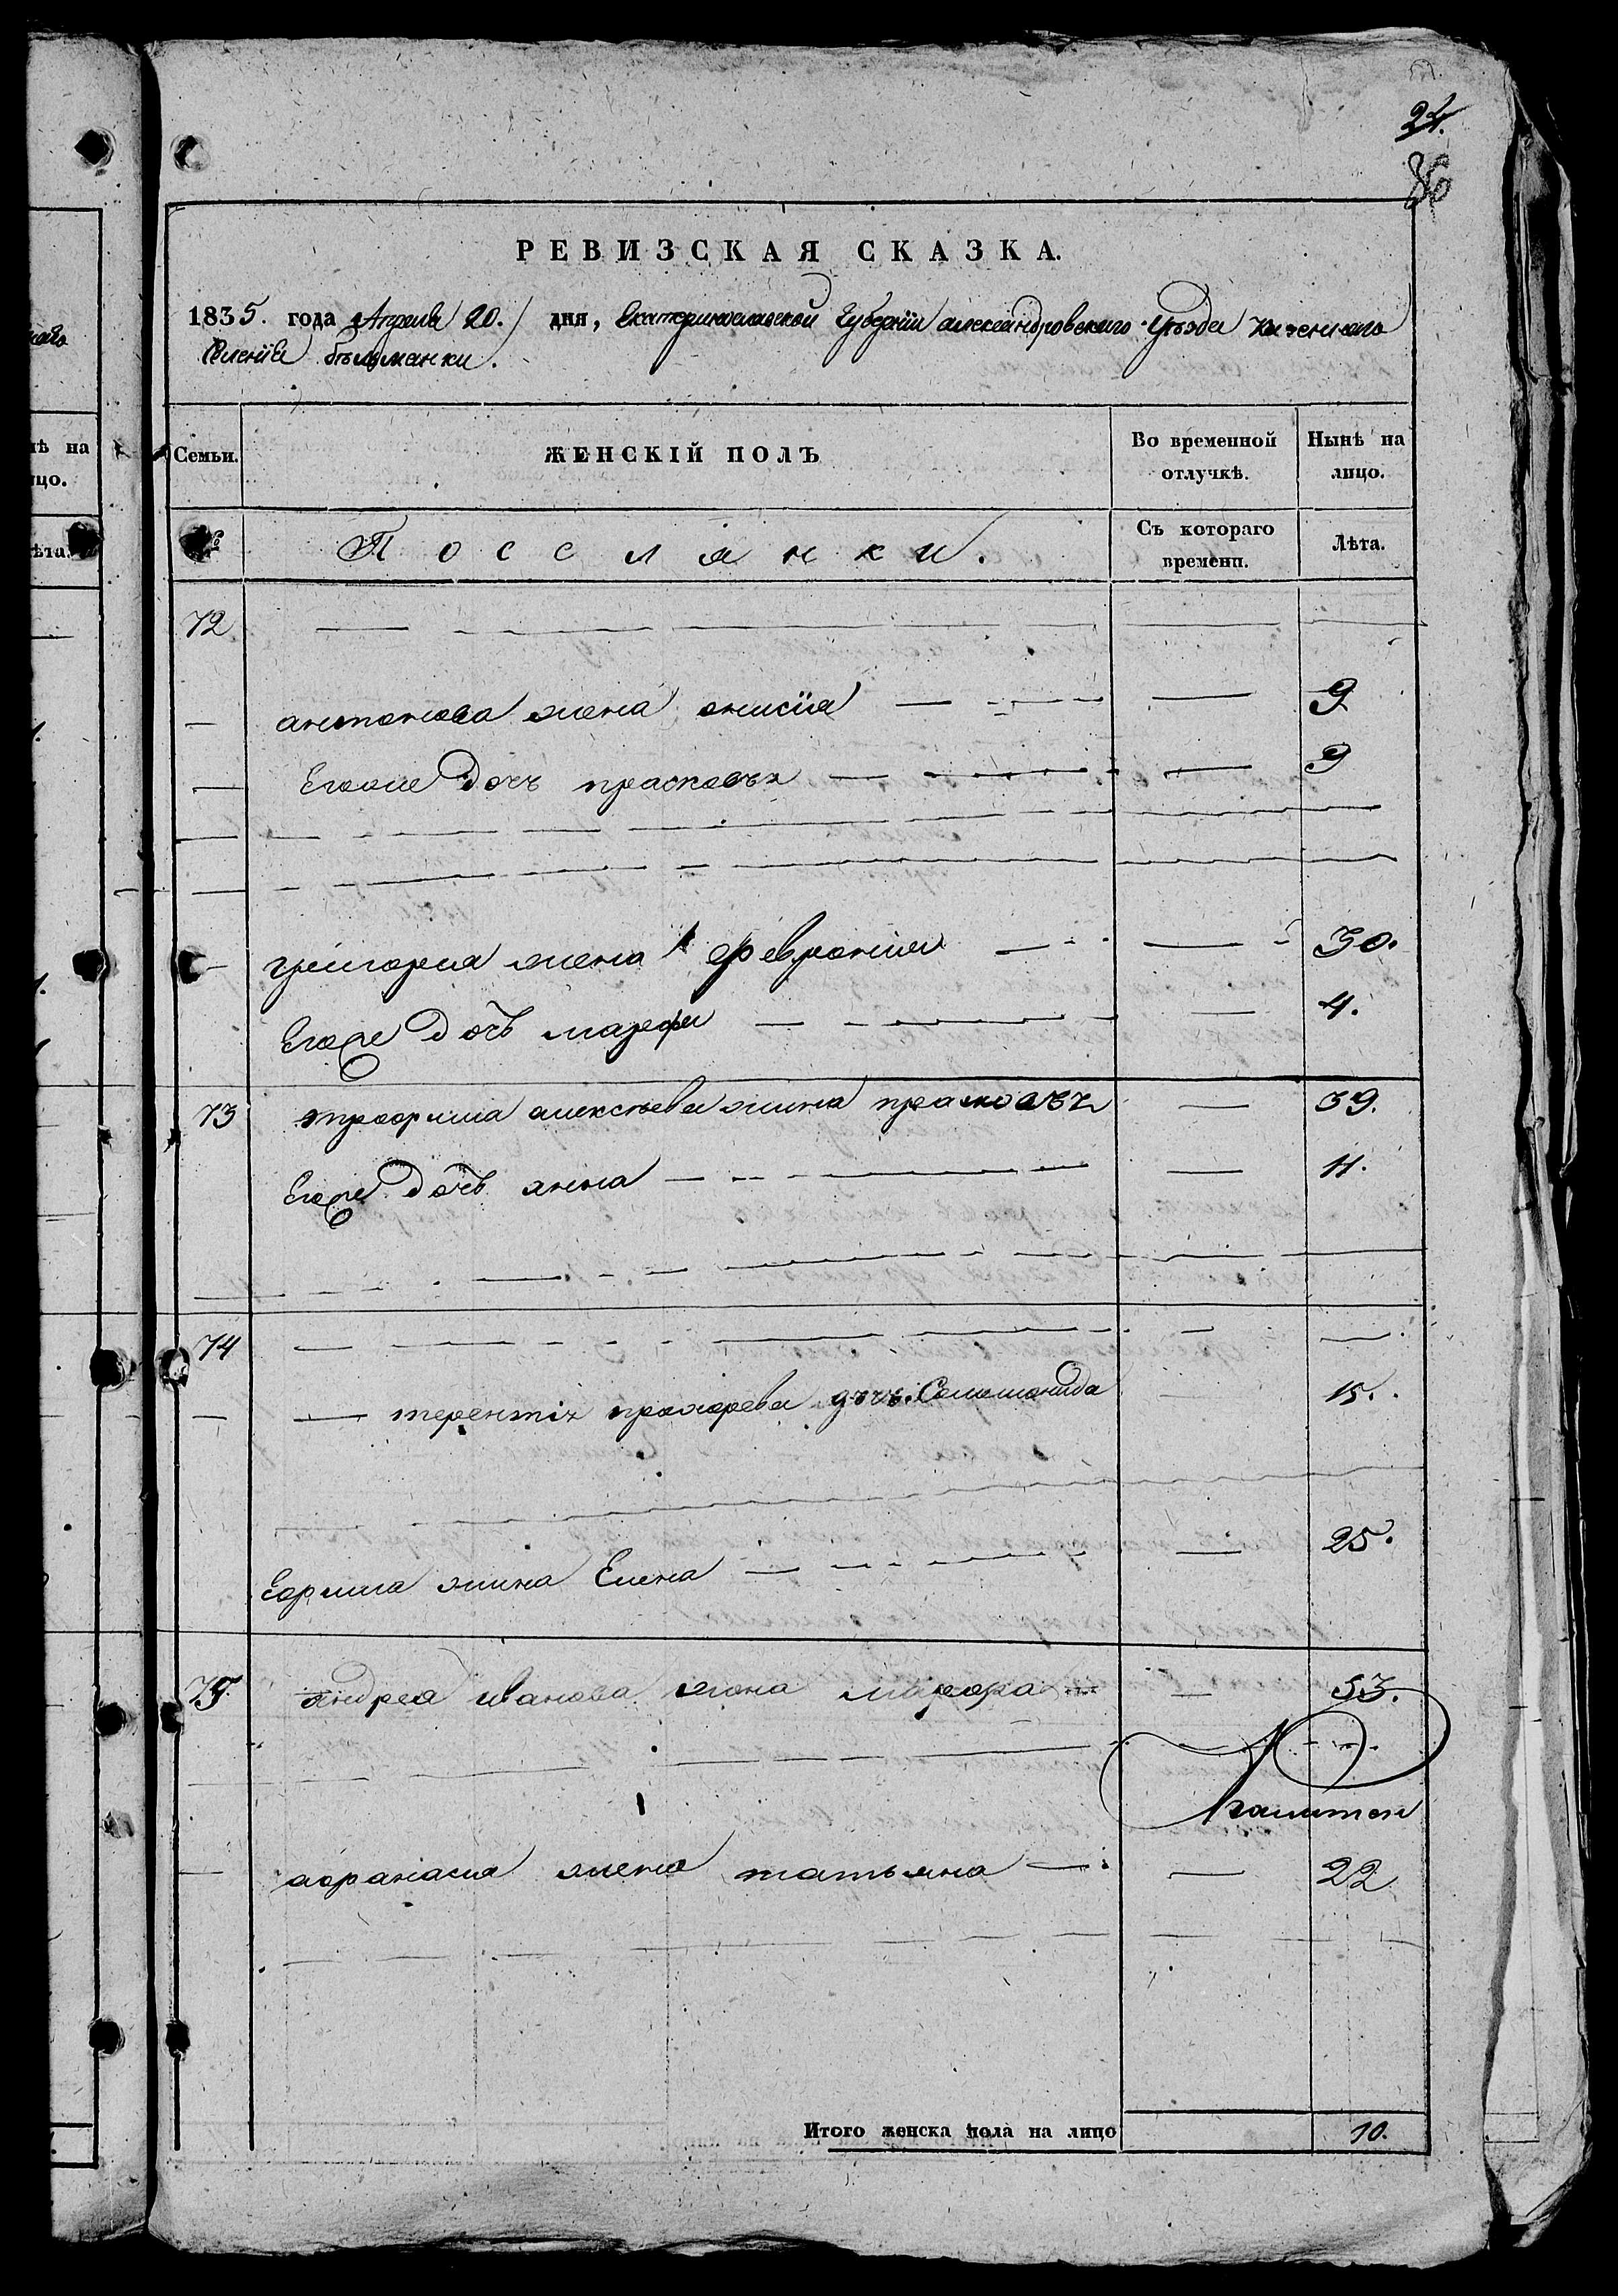 24.
86
РЕВИЗСКАЯ СКАЗКА.
1835. года Апреля 20. дня, Екатеринославской Губернїи александровского Уѣзда казенного
Селенїя бѣльманки.
Семьи. ЖЕНСКІЙ ПОЛЪ Во временной отлучкѣ. Нынѣ на лицо.
№ Поселянки. Съ котораго времени. Лѣта.
72
антонова жена анисїя 9
Егоже дочь прасковья 9
григорея жена феврония 30.
Егоже дочь марфа 4.
73 трофима алексѣева жина прасковья 39.
Егоже дочь анна 11.
74
терентія прохорева дочь Соломонида 15.
Ефима жина Елена 25.
75. андрея иванова жона марфа 53.
афанасия жена татьяна 22
Итого женска пола на лицо 10.